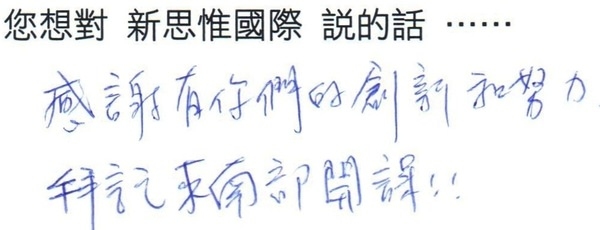 您想對 新思惟國際 説的話 ⋯⋯
感謝有你們的創新和努力
拜託來南部開課!!